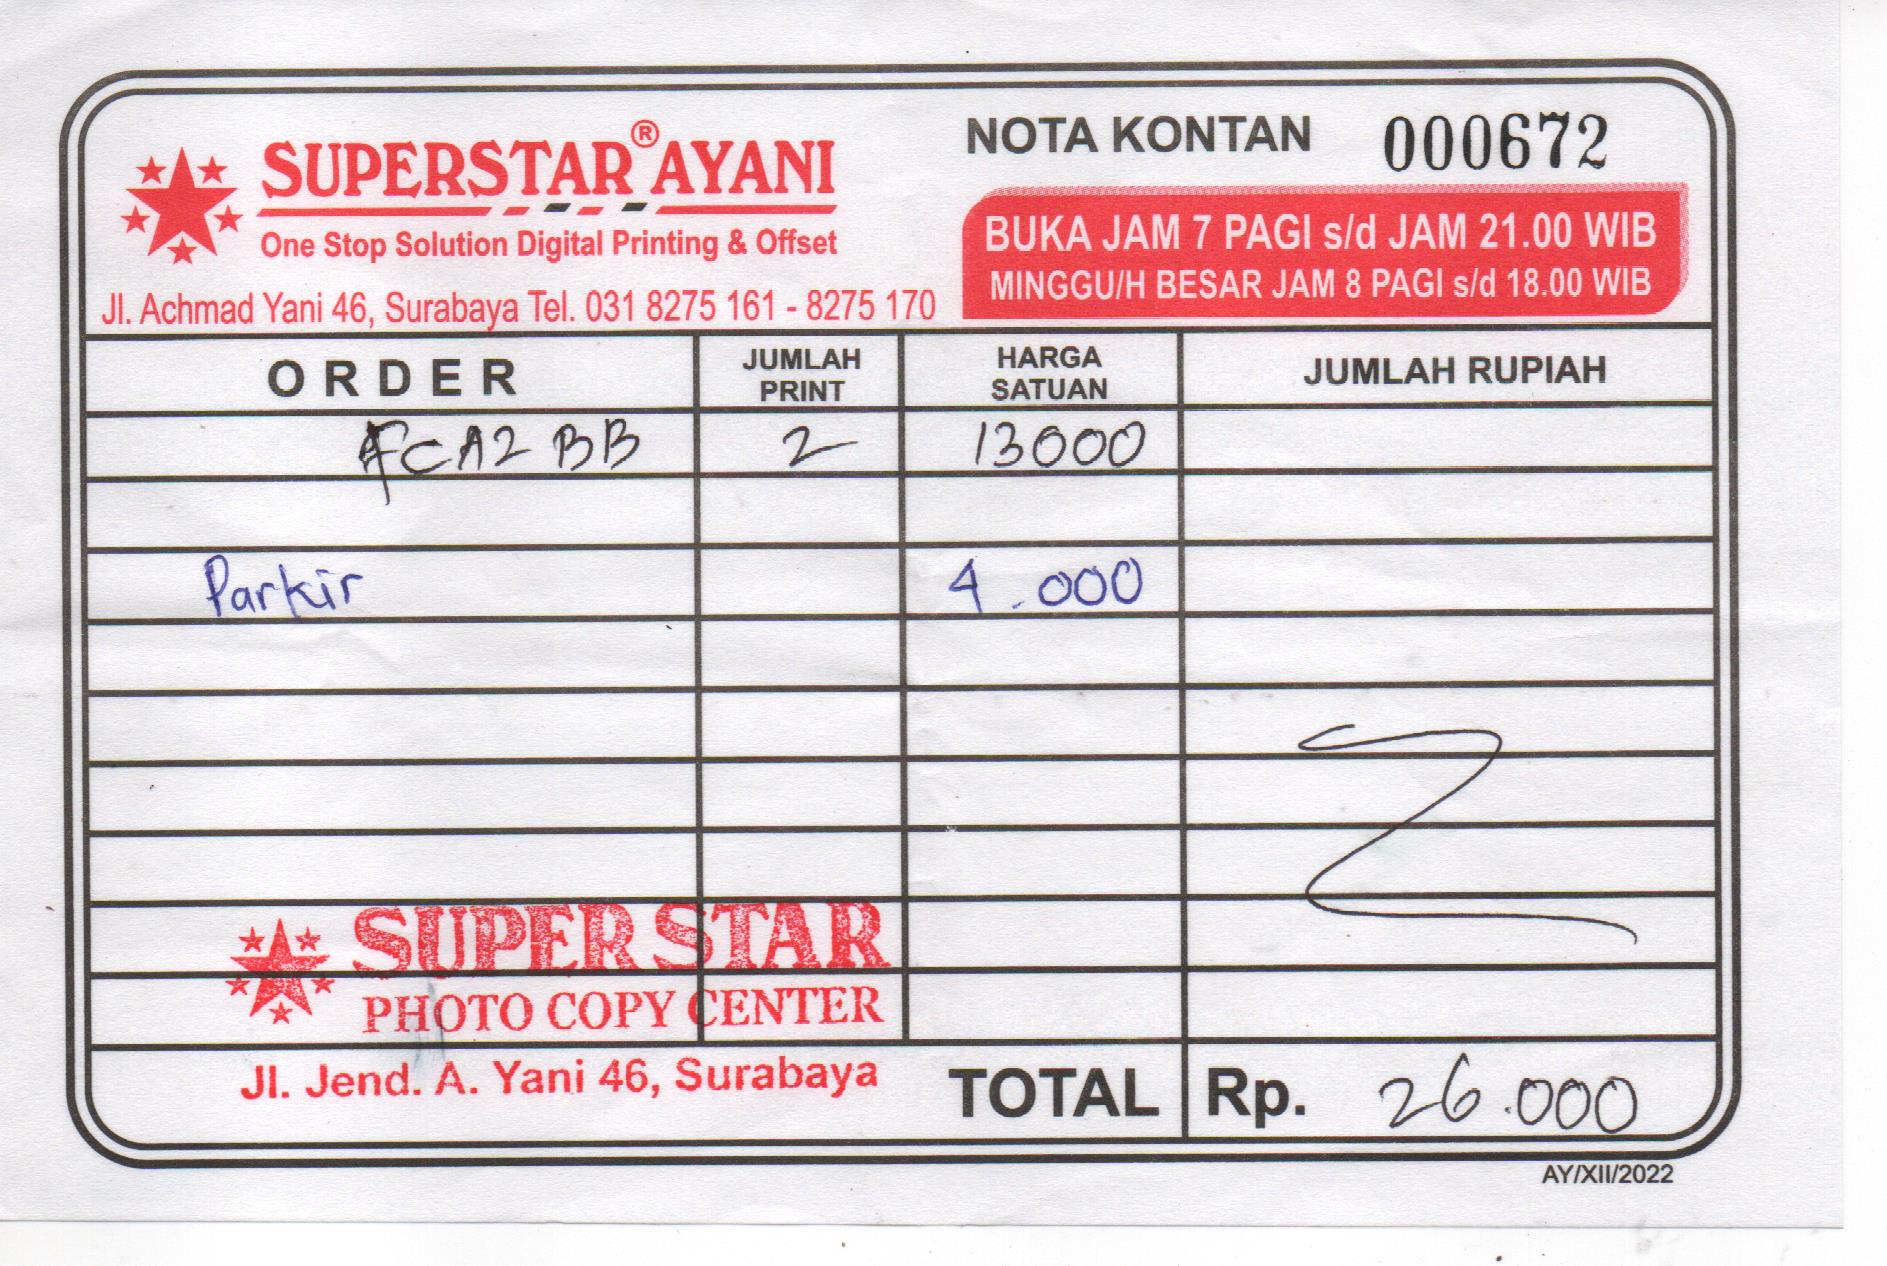 SUPERSTAR® AYANI
One Stop Solution Digital Printing & Offset
Jl. Achmad Yani 46, Surabaya Tel. 031 8275 161 - 8275 170
NOTA KONTAN 000672
BUKA JAM 7 PAGI s/d JAM 21.00 WIB
MINGGU/H BESAR JAM 8 PAGI s/d 18.00 WIB
ORDER JUMLAH PRINT HARGA SATUAN JUMLAH RUPIAH
FC A2 BB 2 13000
Parkir 4.000
SUPER STAR
PHOTO COPY CENTER
Jl. Jend. A. Yani 46, Surabaya
TOTAL Rp. 26.000
AY/XII/2022